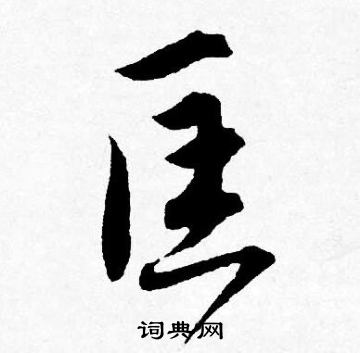 匡
词典网